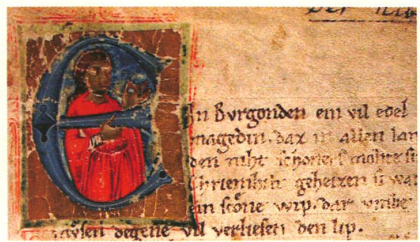 In Bvrgonden ein vil edel
magedin. daz in allen lan
den niht schoners mohte si
Chriemhilt geheizen si wa
ein scone wip. dar vmbe
degene vil verliesen den lip.